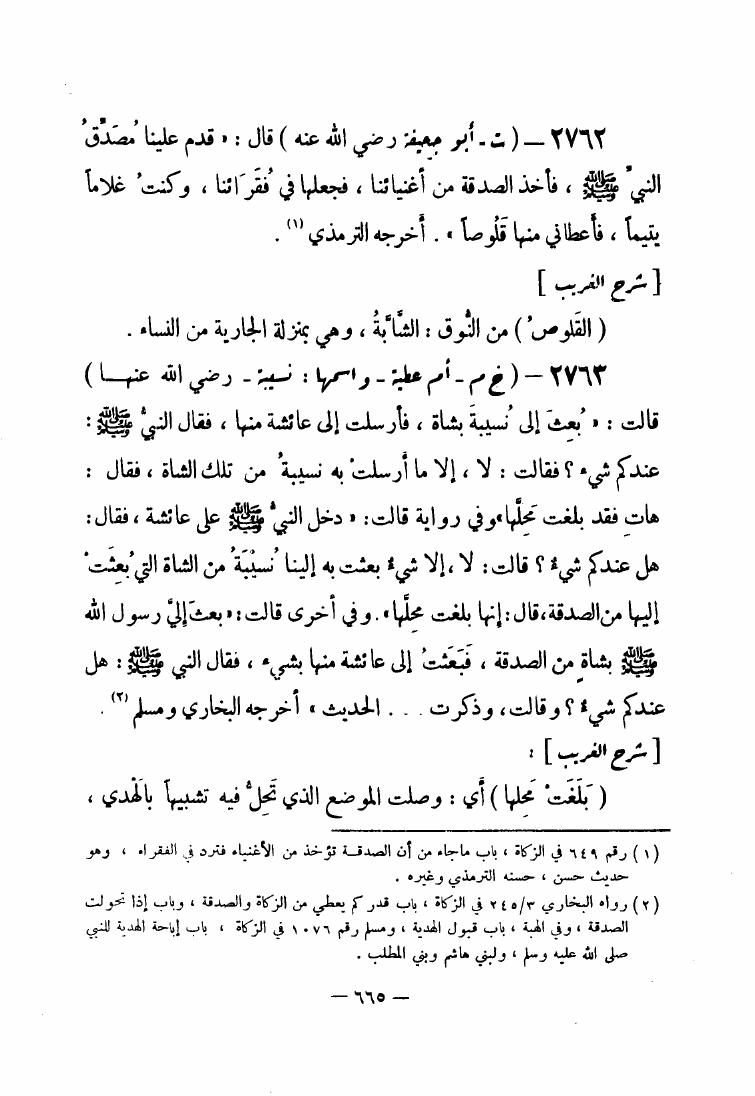 ٢٧٦٢ — ( ت - أبو جحيفة رضي الله عنه ) قال : « قدم علينا مُصَدِّقُ
النبيِّ ﷺ ، فأخذ الصدقة من أغنيائنا ، فجعلها في فُقَرَائنا ، وكنتُ غلاماً
يتيماً ، فأعطاني منها قَلُوصاً » . أخرجه الترمذي (١) .
[ شرح الغريب ]
( القَلوصُ ) من النُّوق : الشَّابَّةُ ، وهي بمنزلة الجارية من النساء .
٢٧٦٣ — ( خ م - أم عطية - واسمها : نسيبة - رضي الله عنهـا )
قالت : « بُعِثَ إلى نُسيبةَ بشاة ، فأرسلت إلى عائشة منها ، فقال النبيُّ ﷺ :
عندكم شيء ؟ فقالت : لا ، إلا ما أرسلتْ به نسيبةُ من تلك الشاة ، فقال :
هاتِ فقد بلغت مَحِلَّها » وفي رواية قالت : « دخل النبيُّ ﷺ على عائشة ، فقال :
هل عندكم شيءٌ ؟ قالت : لا ، إلا شيءٌ بعثت به إلينا نُسيْبَةُ من الشاة التي بُعِثَتْ
إليها من الصدقة ، قال : إنها بلغت مَحِلَّها » . وفي أخرى قالت : « بعثَ إليَّ رسول الله
ﷺ بشاةٍ من الصدقة ، فَبَعَثتُ إلى عائشة منها بشيء ، فقال النبي ﷺ : هل
عندكم شيءٌ ؟ وقالت ، وذكرت . . . الحديث » أخرجه البخاري ومسلم (٢) .
[ شرح الغريب ] :
( بَلَغَتْ مَحِلها ) أي : وصلت الموضع الذي تَحِلُّ فيه تشبيهاً بالْهَدي ،
(١) رقم ٦٤٩ في الزكاة ، باب ماجاء من أن الصدقــة تؤخذ من الأغنياء فترد في الفقراء ، وهو
حديث حسن ، حسنه الترمذي وغيره .
(٢) رواه البخاري ٢٤٥/٣ في الزكاة ، باب قدر كم يعطي من الزكاة والصدقة ، وباب إذا تحولت
الصدقة ، وفي الهبة ، باب قبول الهدية ، ومسلم رقم ١٠٧٦ في الزكاة ، باب إباحة الهدية للنبي
صلى الله عليه وسلم ، ولبني هاشم وبني المطلب .
— ٦٦٥ —